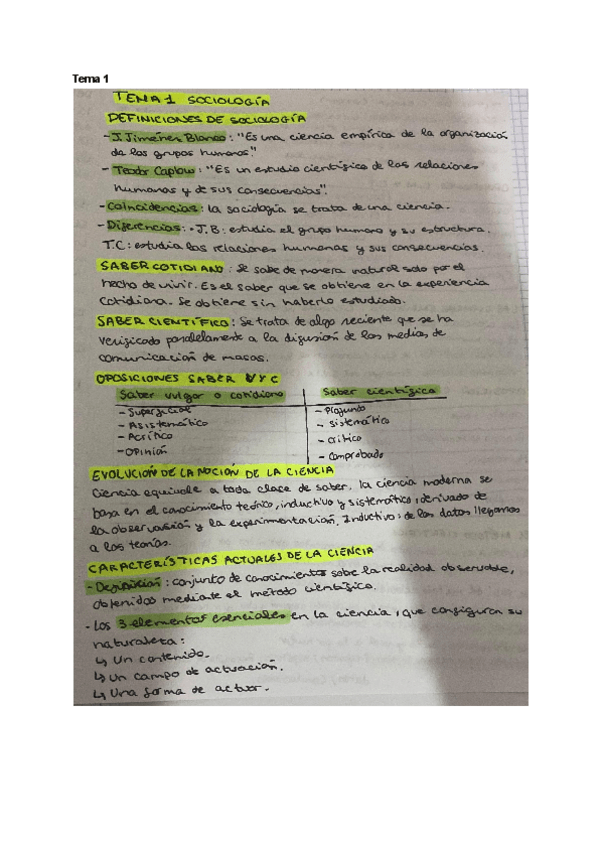 Tema 1
TEMA 1 SOCIOLOGÍA
DEFINICIONES DE SOCIOLOGÍA
- J. Jimenez Blanco: "Es una ciencia empírica de la organización
de los grupos humanos"
- Teodor Caplow: "Es un estudio científico de las relaciones
humanas y de sus consecuencias".
- Coincidencias: la sociología se trata de una ciencia.
- Diferencias: • J.B: estudia el grupo humano y su estructura.
T.C: estudia las relaciones humanas y sus consecuencias.
SABER COTIDIANO: Se sabe de manera natural solo por el
hecho de vivir. Es el saber que se obtiene en la experiencia
cotidiana. Se obtiene sin haberlo estudiado.
SABER CIENTÍFICO: Se trata de algo reciente que se ha
verificado paralelamente a la difusión de los medios de
comunicación de masas.
OPOSICIONES SABER V Y C
Saber vulgar o cotidiano Saber científico
- Superficial - Profundo
- Asistemático - Sistemático
- Acrítico - Crítico
- Opinión - Comprobado
EVOLUCIÓN DE LA NOCIÓN DE LA CIENCIA
Ciencia equivale a toda clase de saber. la ciencia moderna se
basa en el conocimiento teórico, inductivo y sistemático, derivado de
la observación y la experimentación. Inductivo: de los datos llegamos
a las teorías.
CARACTERÍSTICAS ACTUALES DE LA CIENCIA
- Definición: conjunto de conocimientos sobe la realidad observable,
obtenidos mediante el método científico.
- Los 3 elementos esenciales en la ciencia, que configuran su
naturaleza:
↳ Un contenido.
↳ Un campo de actuación.
↳ Una forma de actuar.